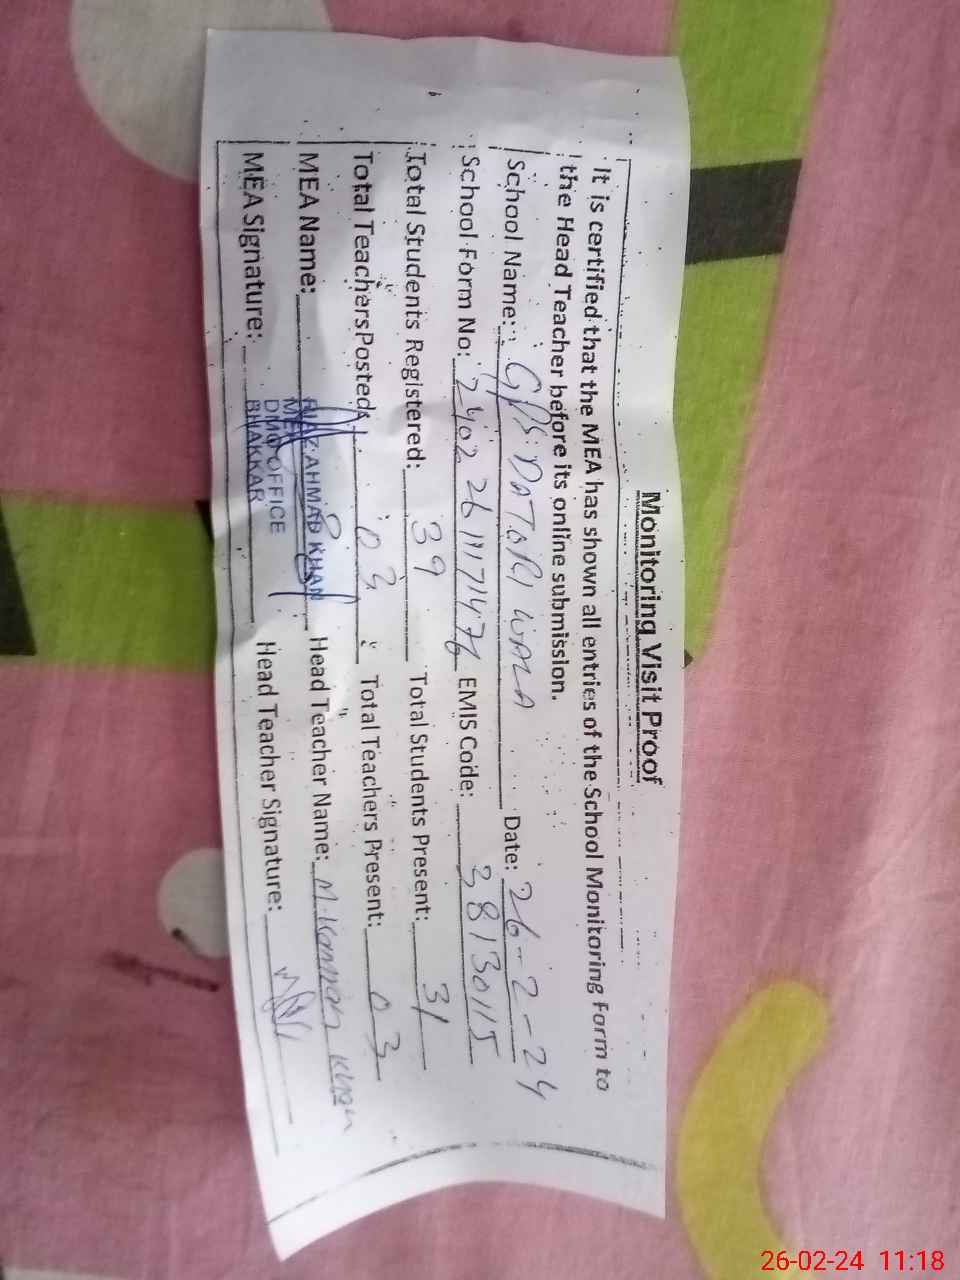 Monitoring Visit Proof
It is certified that the MEA has shown all entries of the School Monitoring Form to
the Head Teacher before its online submission.
School Name: GPS. DATORI WALA Date: 26-2-24
School Form No: 2402 26 EMIS Code: 38130115
Total Students Registered: 39 Total Students Present: 31
Total Teachers Posted: 03 Total Teachers Present: 03
MEA Name: Head Teacher Name: M. Khan
NIAZ AHMAD KHAN
MEA
DMO OFFICE
BHAKKAR
MEA Signature: Head Teacher Signature:
26-02-24 11:18